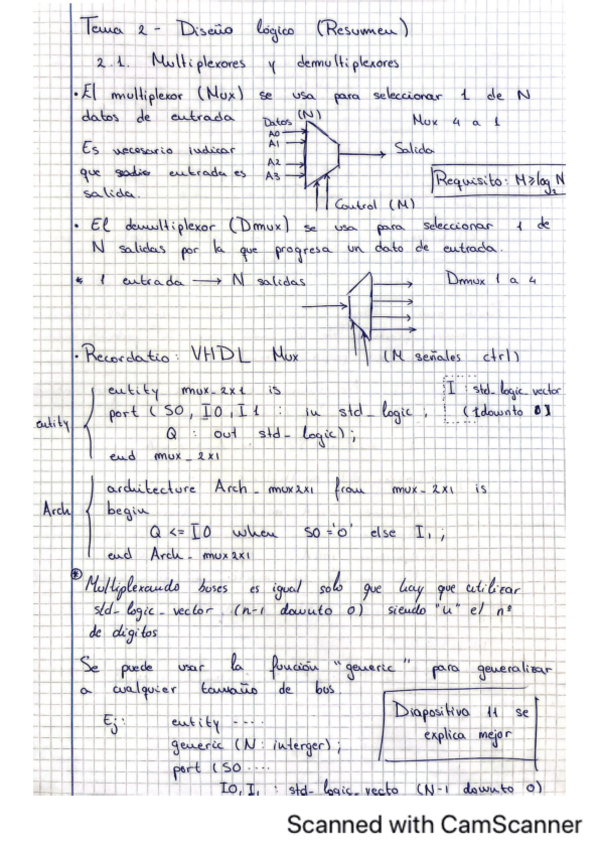 Tema 2 - Diseño lógico (Resumen)
2.1. Multiplexores y demultiplexores
· El multiplexor (Mux) se usa para seleccionar 1 de N
datos de entrada
Datos (N)
Mux 4 a 1
A0
A1
A2
A3
Salida
Es necesario indicar
que entrada es
salida.
Requisito: M≥log₂N
Control (M)
· El demultiplexor (Dmux) se usa para seleccionar 1 de
N salidas por la que progresa un dato de entrada.
* 1 entrada → N salidas
Dmux 1 a 4
(M señales ctrl)
· Recordatio: VHDL Mux
entity
entity mux_2x1 is
port (S0, I0, I1 : in std_logic;
Q : out std_logic);
end mux_2x1
I : std_logic_vector
(1downto 0)
Arch
architecture Arch_mux2x1 from mux_2x1 is
begin
Q <= I0 when S0='0' else I1;
end Arch_mux2x1
* Multiplexando buses es igual solo que hay que utilizar
std_logic_vector (n-1 downto 0) siendo "n" el nº
de digitos
Se puede usar la función "generic" para generalizar
a cualquier tamaño de bus.
Ej: entity ----
generic (N: interger);
port (S0 ....
I0, I1 : std-logic_vecto (N-1 downto 0)
Diapositiva 11 se
explica mejor
Scanned with CamScanner